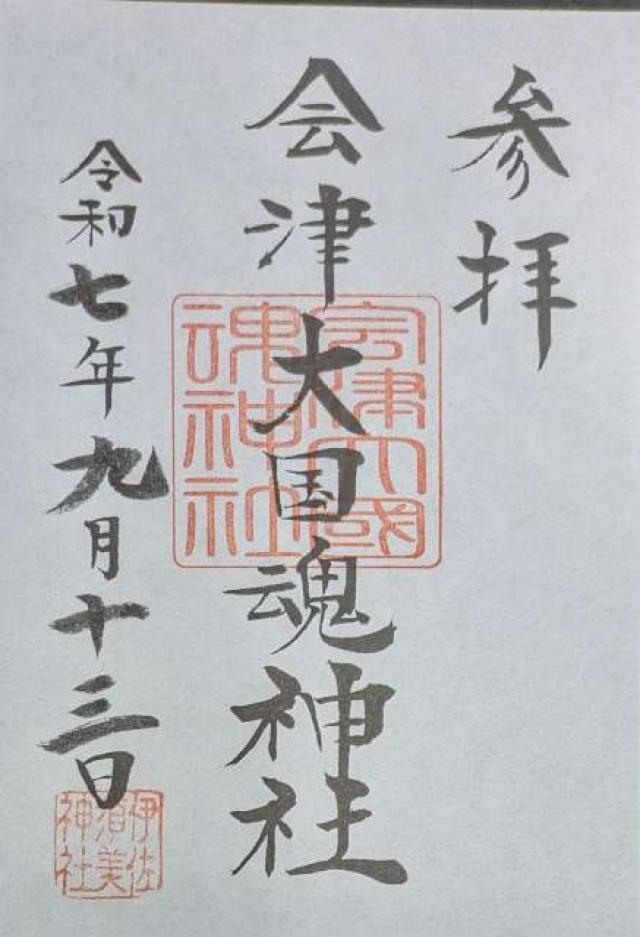 参拝
会津大国魂神社
會津大國魂神社
令和七年九月十三日
伊佐須美神社